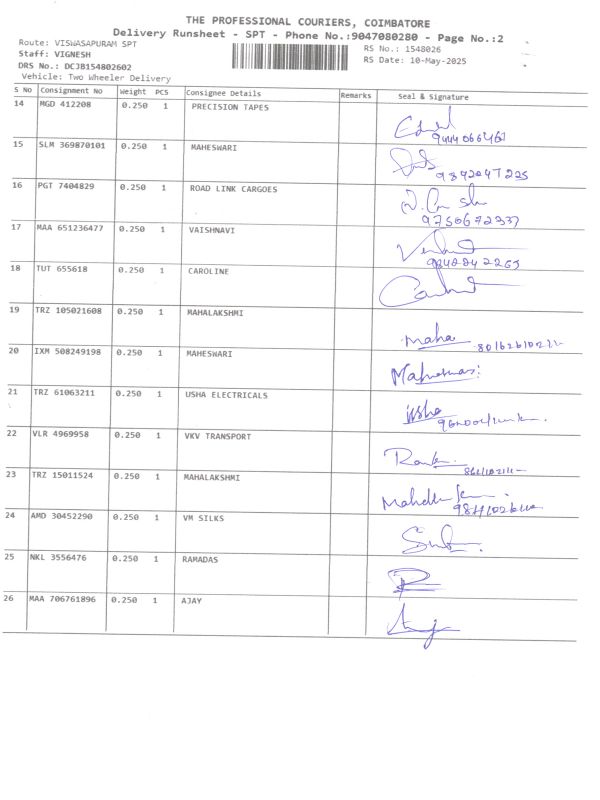 THE PROFESSIONAL COURIERS, COIMBATORE
Delivery Runsheet - SPT - Phone No.:9047080280 - Page No.:2
Route: VISWASAPURAM SPT
RS No.: 1548026
Staff: VIGNESH
RS Date: 10-May-2025
DRS No.: DCJB154802602
Vehicle: Two Wheeler Delivery
S No Consignment No Weight PCS Consignee Details Remarks Seal & Signature
14 MGD 412208 0.250 1 PRECISION TAPES
15 SLM 369870101 0.250 1 MAHESWARI
9842047225
16 PGT 7404829 0.250 1 ROAD LINK CARGOES
9750672337
17 MAA 651236477 0.250 1 VAISHNAVI
18 TUT 655618 0.250 1 CAROLINE
19 TRZ 105021608 0.250 1 MAHALAKSHMI
Maha
20 IXM 508249198 0.250 1 MAHESWARI
21 TRZ 61063211 0.250 1 USHA ELECTRICALS
Usha
22 VLR 4969958 0.250 1 VKV TRANSPORT
23 TRZ 15011524 0.250 1 MAHALAKSHMI
24 AMD 30452290 0.250 1 VM SILKS
25 NKL 3556476 0.250 1 RAMADAS
26 MAA 706761896 0.250 1 AJAY